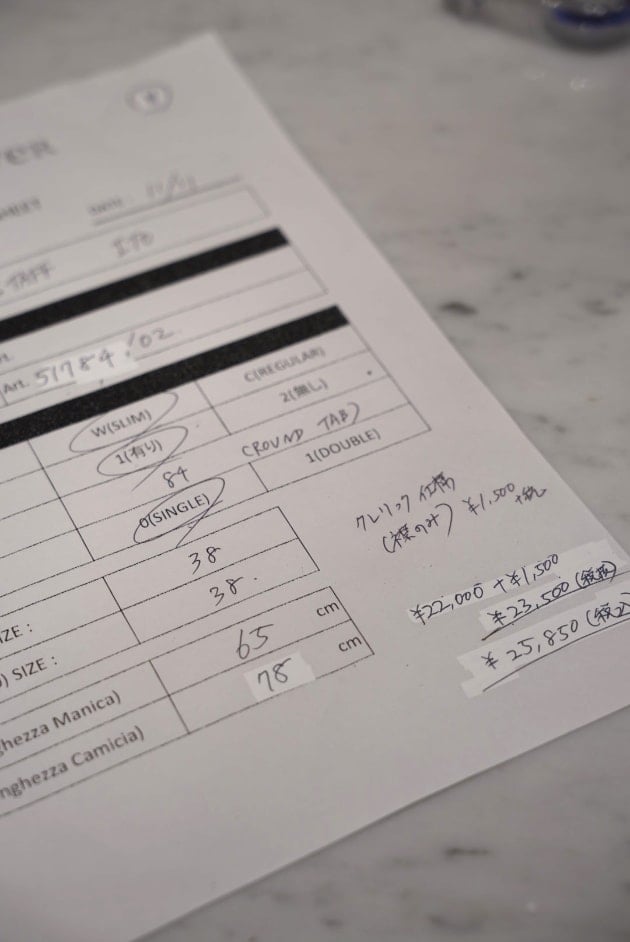 DATE :
TAFF ITO
Art. 51784/02
W(SLIM) C(REGULAR)
1(有り) 2(無し)
84 (ROUND TAB)
0(SINGLE) 1(DOUBLE)
クレリック仕様
(襟のみ) ¥1,500
+税
38
IZE : 38
) SIZE :
¥22,000 + ¥1,500
¥23,500 (税抜)
¥25,850 (税込)
65 cm
ghezza Manica) 78 cm
nghezza Camicia)